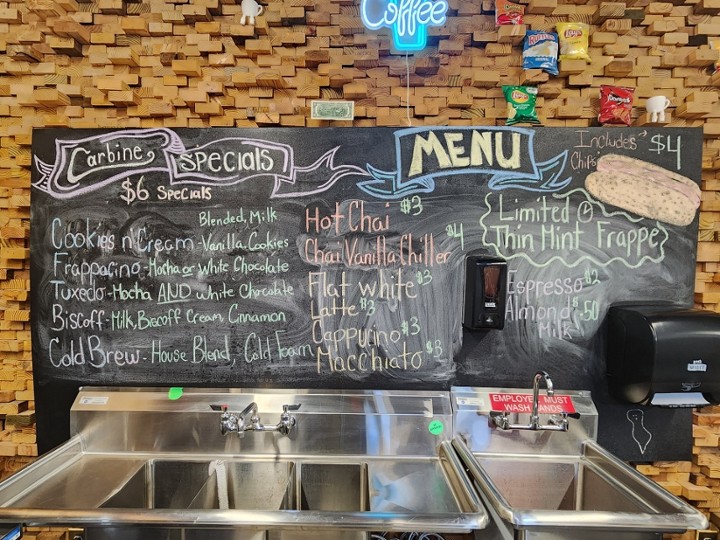 Coffee
Ruffles
Lay's
Carbine Specials
$6 Specials
Blended, Milk
Cookies n' Cream - Vanilla, Cookies
Frappacino - Mocha or White Chocolate
Tuxedo - Mocha AND White Chocolate
Biscoff - Milk, Biscoff Cream, Cinnamon
Cold Brew - House Blend, Cold Foam
MENU
Hot Chai $3
Chai Vanilla Chiller $4
Flat white $3
Latte $3
Cappucino $3
Macchiato $3
Includes → $4
Chips
Limited
Thin Mint Frappe
Espresso $2
Almond $.50
Milk
EMPLOYEES MUST
WASH HANDS